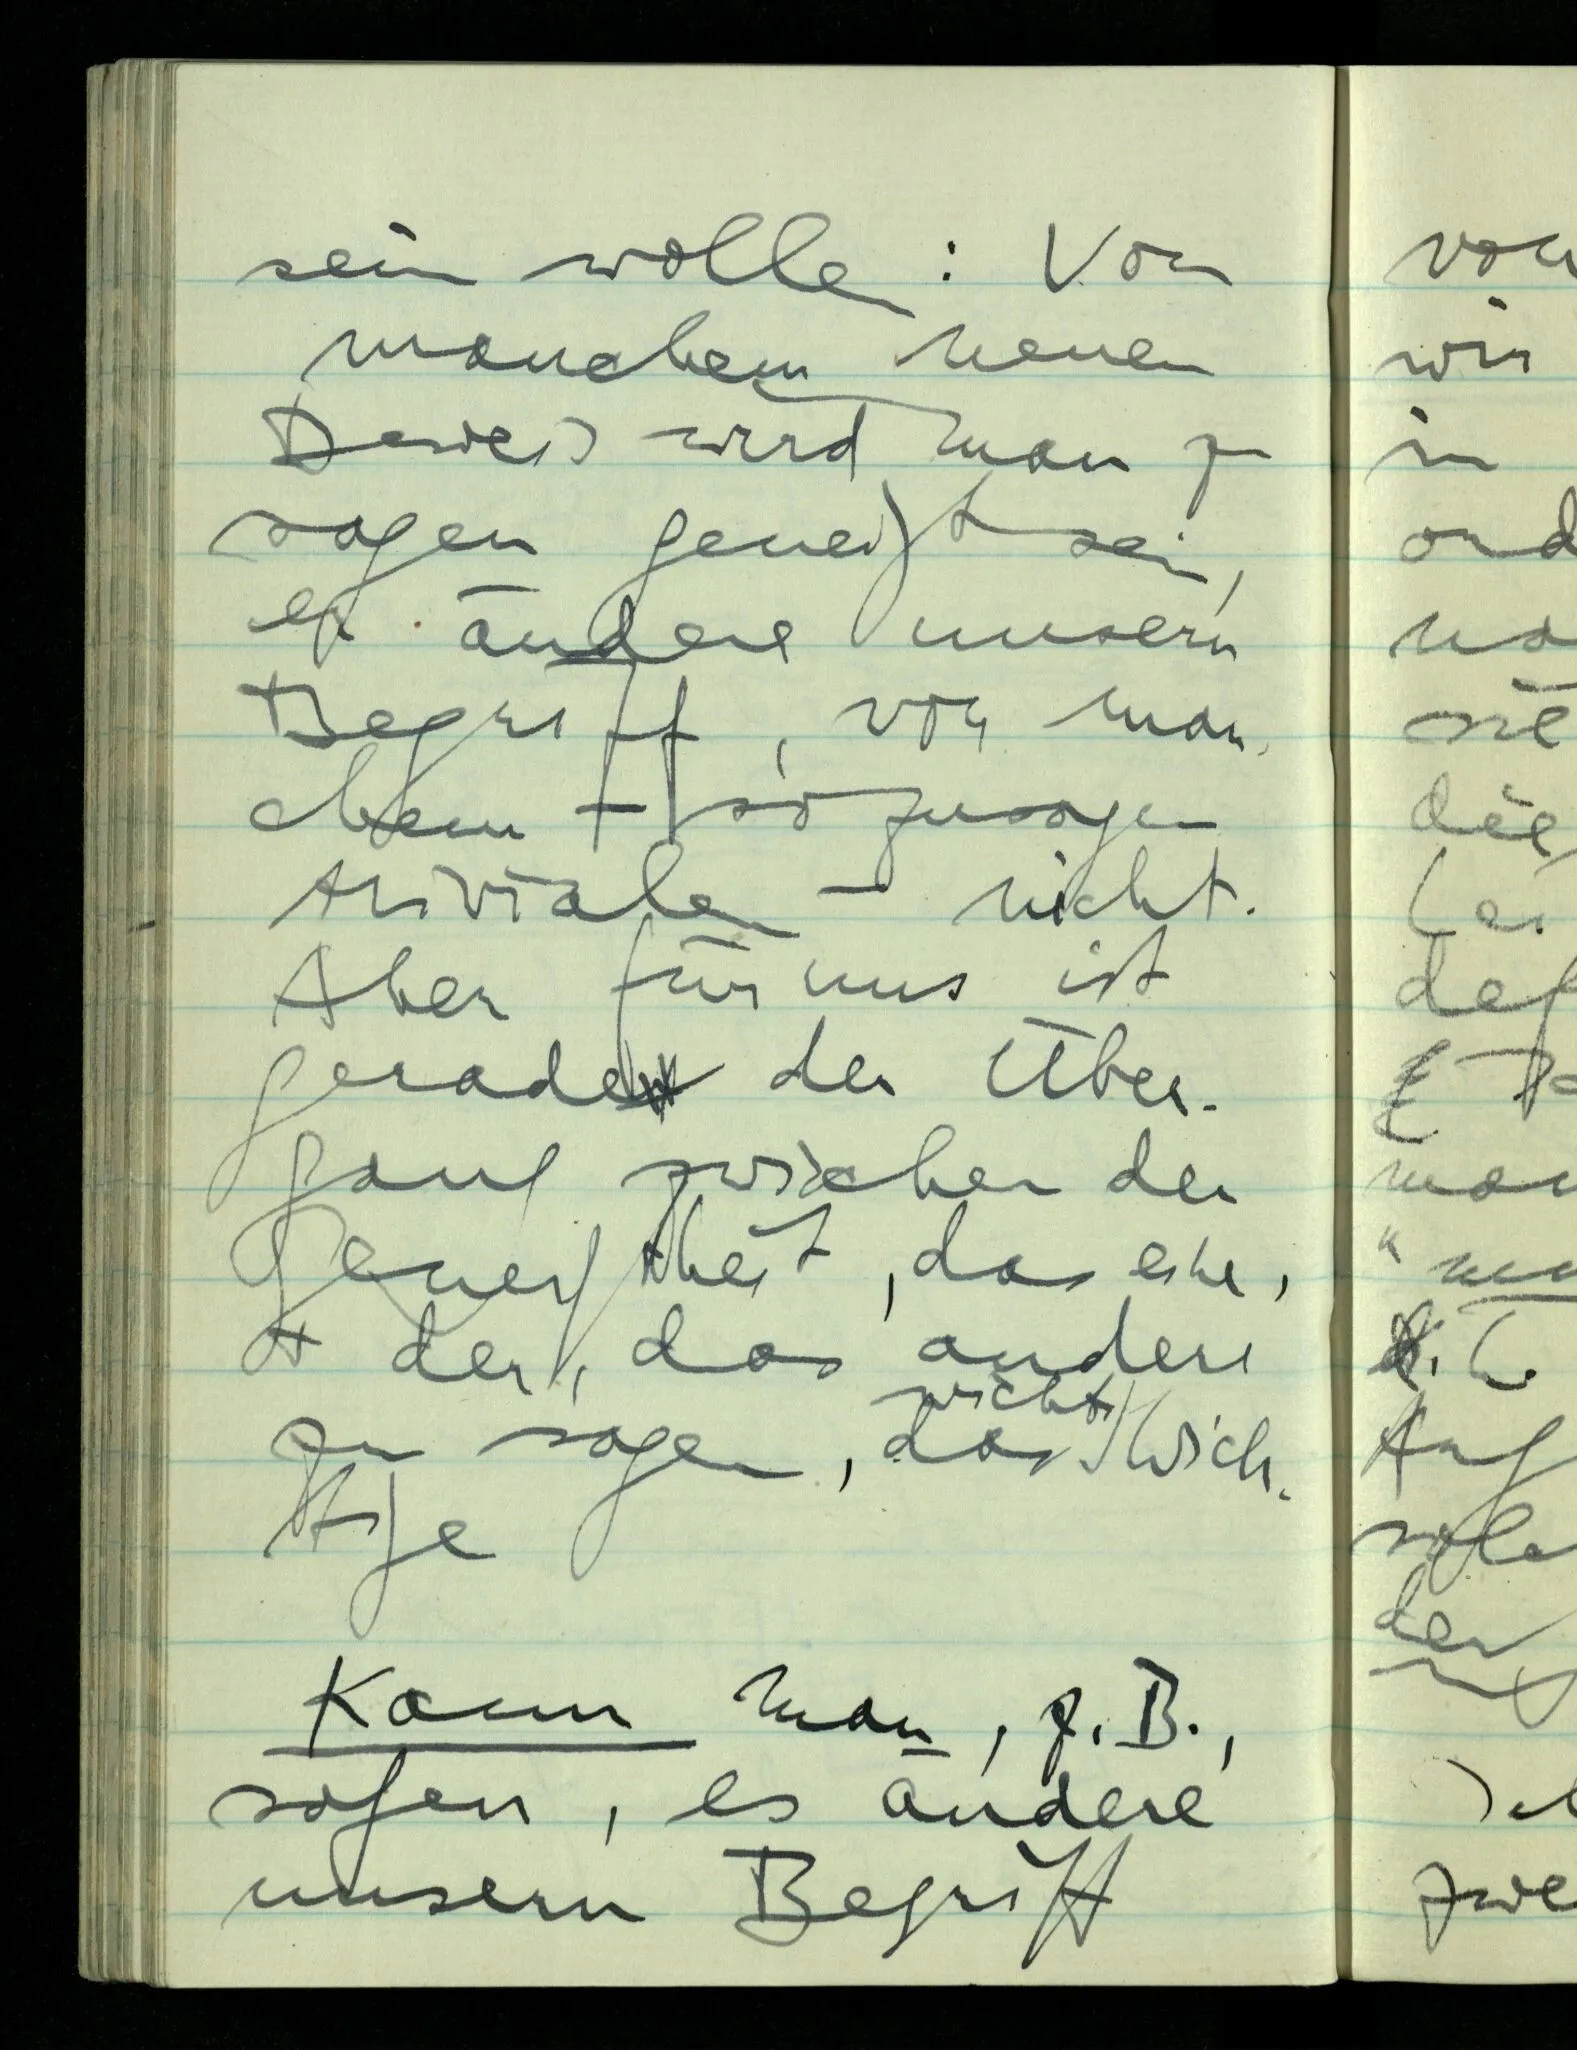 sein wollen : Von
manchem neuen
Beweis wird man zu
sagen geneigt sein,
er ändere unsern
Begriff, von man-
chem – sozusagen
trivialen – nicht.
Aber für uns ist
gerade der Über-
gang zwischen der
Geneigtheit, das eine,
& der, das andere
nicht
zu sagen, das Wich-
tige
Kann man, z.B.,
sagen, es ändere
unsern Begriff
wir
in
and